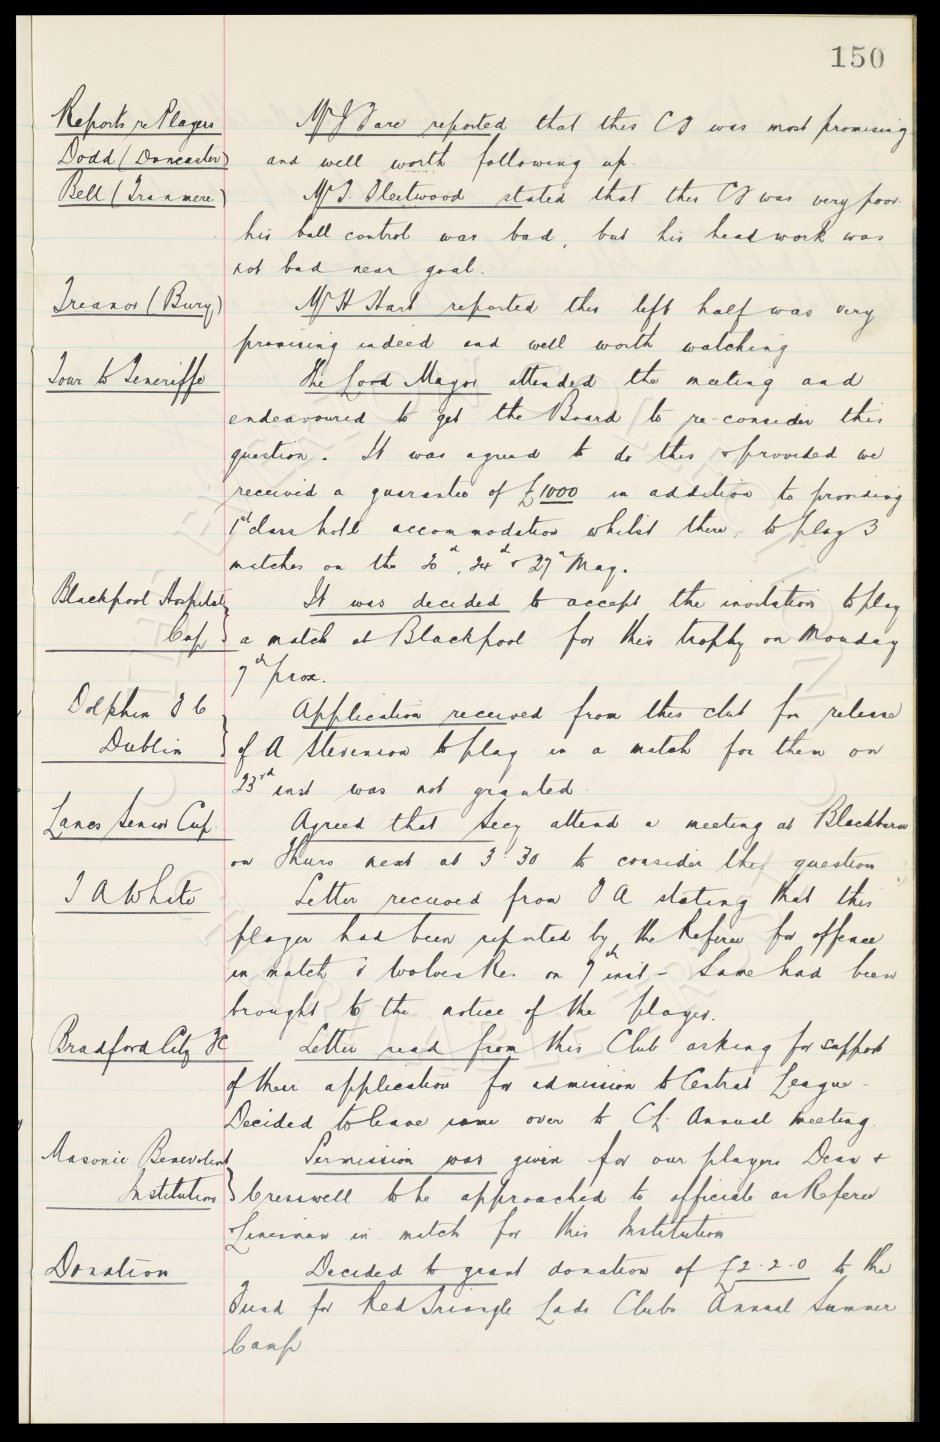 150
Reports re Players Mr J Fare reported that this CF was most promising
Dodd (Doncaster) and well worth following up.
Bell (Tranmere) Mr T. Fleetwood stated that this CF was very poor
his ball control was bad, but his headwork was
not bad near goal.
Treanor (Bury) Mr H Hart reported this left half was very
promising indeed and well worth watching
Tour to Teneriffe The Lord Mayor attended the meeting and
endeavoured to get the Board to re-consider this
question. It was agreed to do this & provided we
received a guarantee of £1000 in addition to providing
1st class hotel accommodation whilst there, to play 3
matches on the 20th, 24th & 27th May.
Blackpool Hospital It was decided to accept the invitation to play
Cup a match at Blackpool for this trophy on Monday
7th prox.
Dolphin F C Application received from this club for release
Dublin of A Stevenson to play in a match for them on
23rd inst was not granted.
Lancs Senior Cup. Agreed that Secy attend a meeting at Blackburn
on Thurs next at 3.30 to consider this question
T A White Letter received from F A stating that this
player had been reported by the Referee for offence
in match v Wolves Res on 7th inst - Same had been
brought to the notice of the player.
Bradford City FC Letter read from this Club asking for support
of their application for admission to Central League -
Decided to leave same over to C.L. Annual Meeting.
Masonic Benevolent Permission was given for our players Dean &
Institution Cresswell to be approached to officiate as Referee
& Linesman in match for this Institution
Donation Decided to grant donation of £2.2.0 to the
Fund for Red Triangle Lads Clubs Annual Summer
Camp